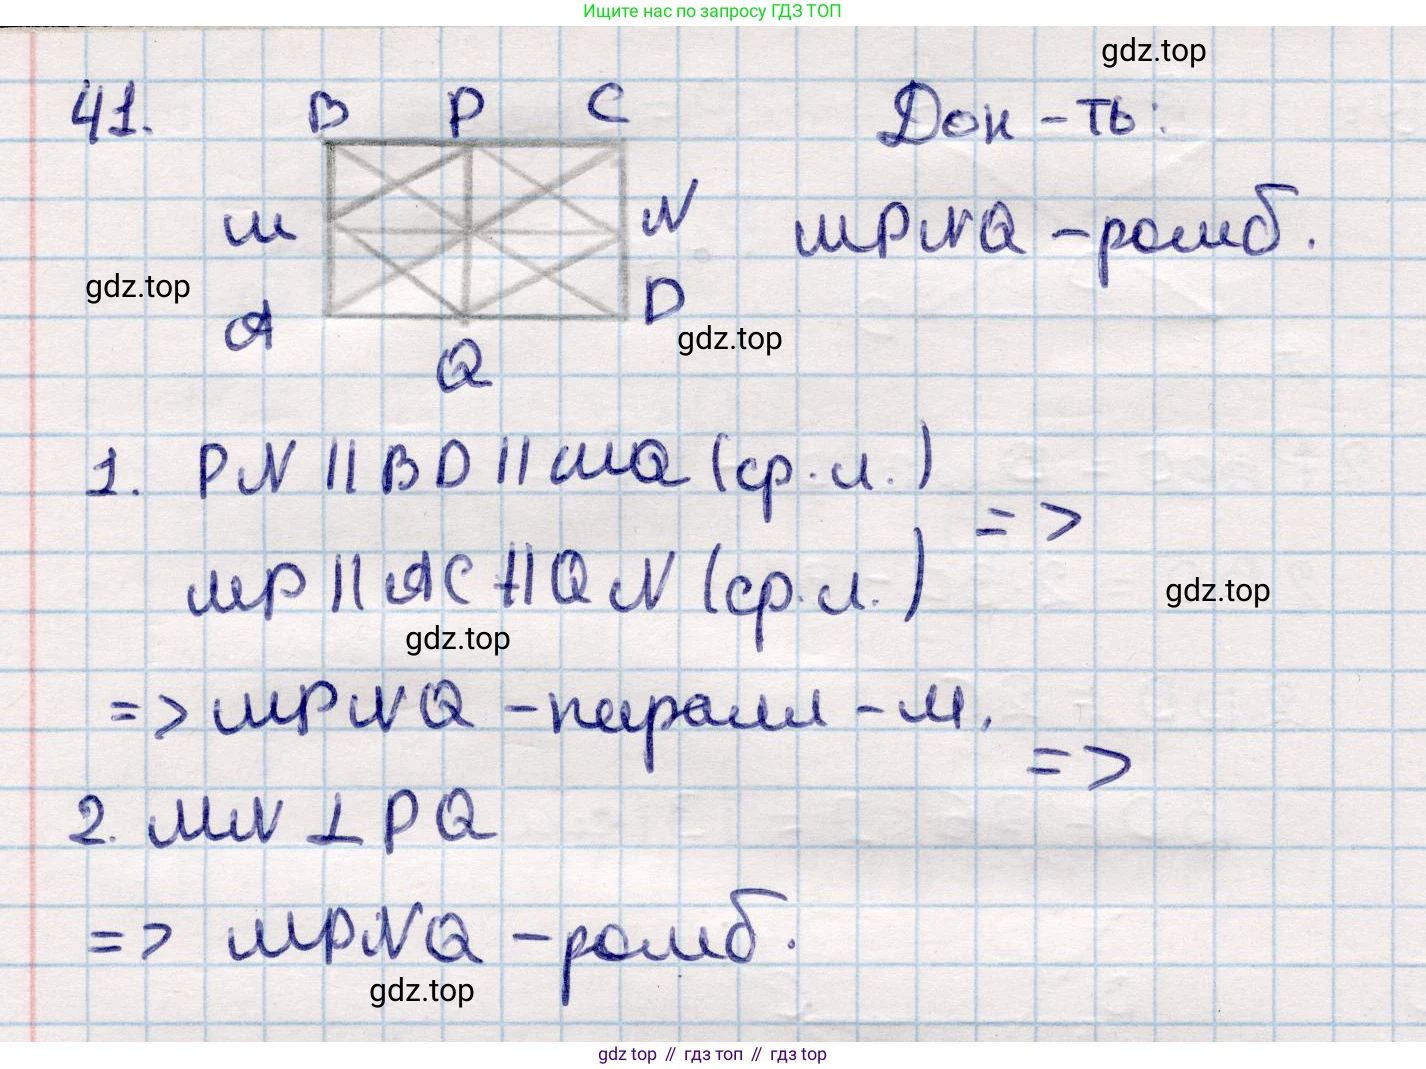 Ищите нас по запросу ГДЗ ТОП
gdz.top
41. B P C Док-ть:
M N MPNQ - ромб.
gdz.top
A D
gdz.top
Q
1. PN || BD || MQ (ср. л.)
=>
MP || AC || QN (ср. л.)
gdz.top
gdz.top
=> MPNQ - паралл-м.
=>
2. MN ⊥ PQ
=> MPNQ - ромб.
gdz.top
gdz top // гдз топ // gdz top